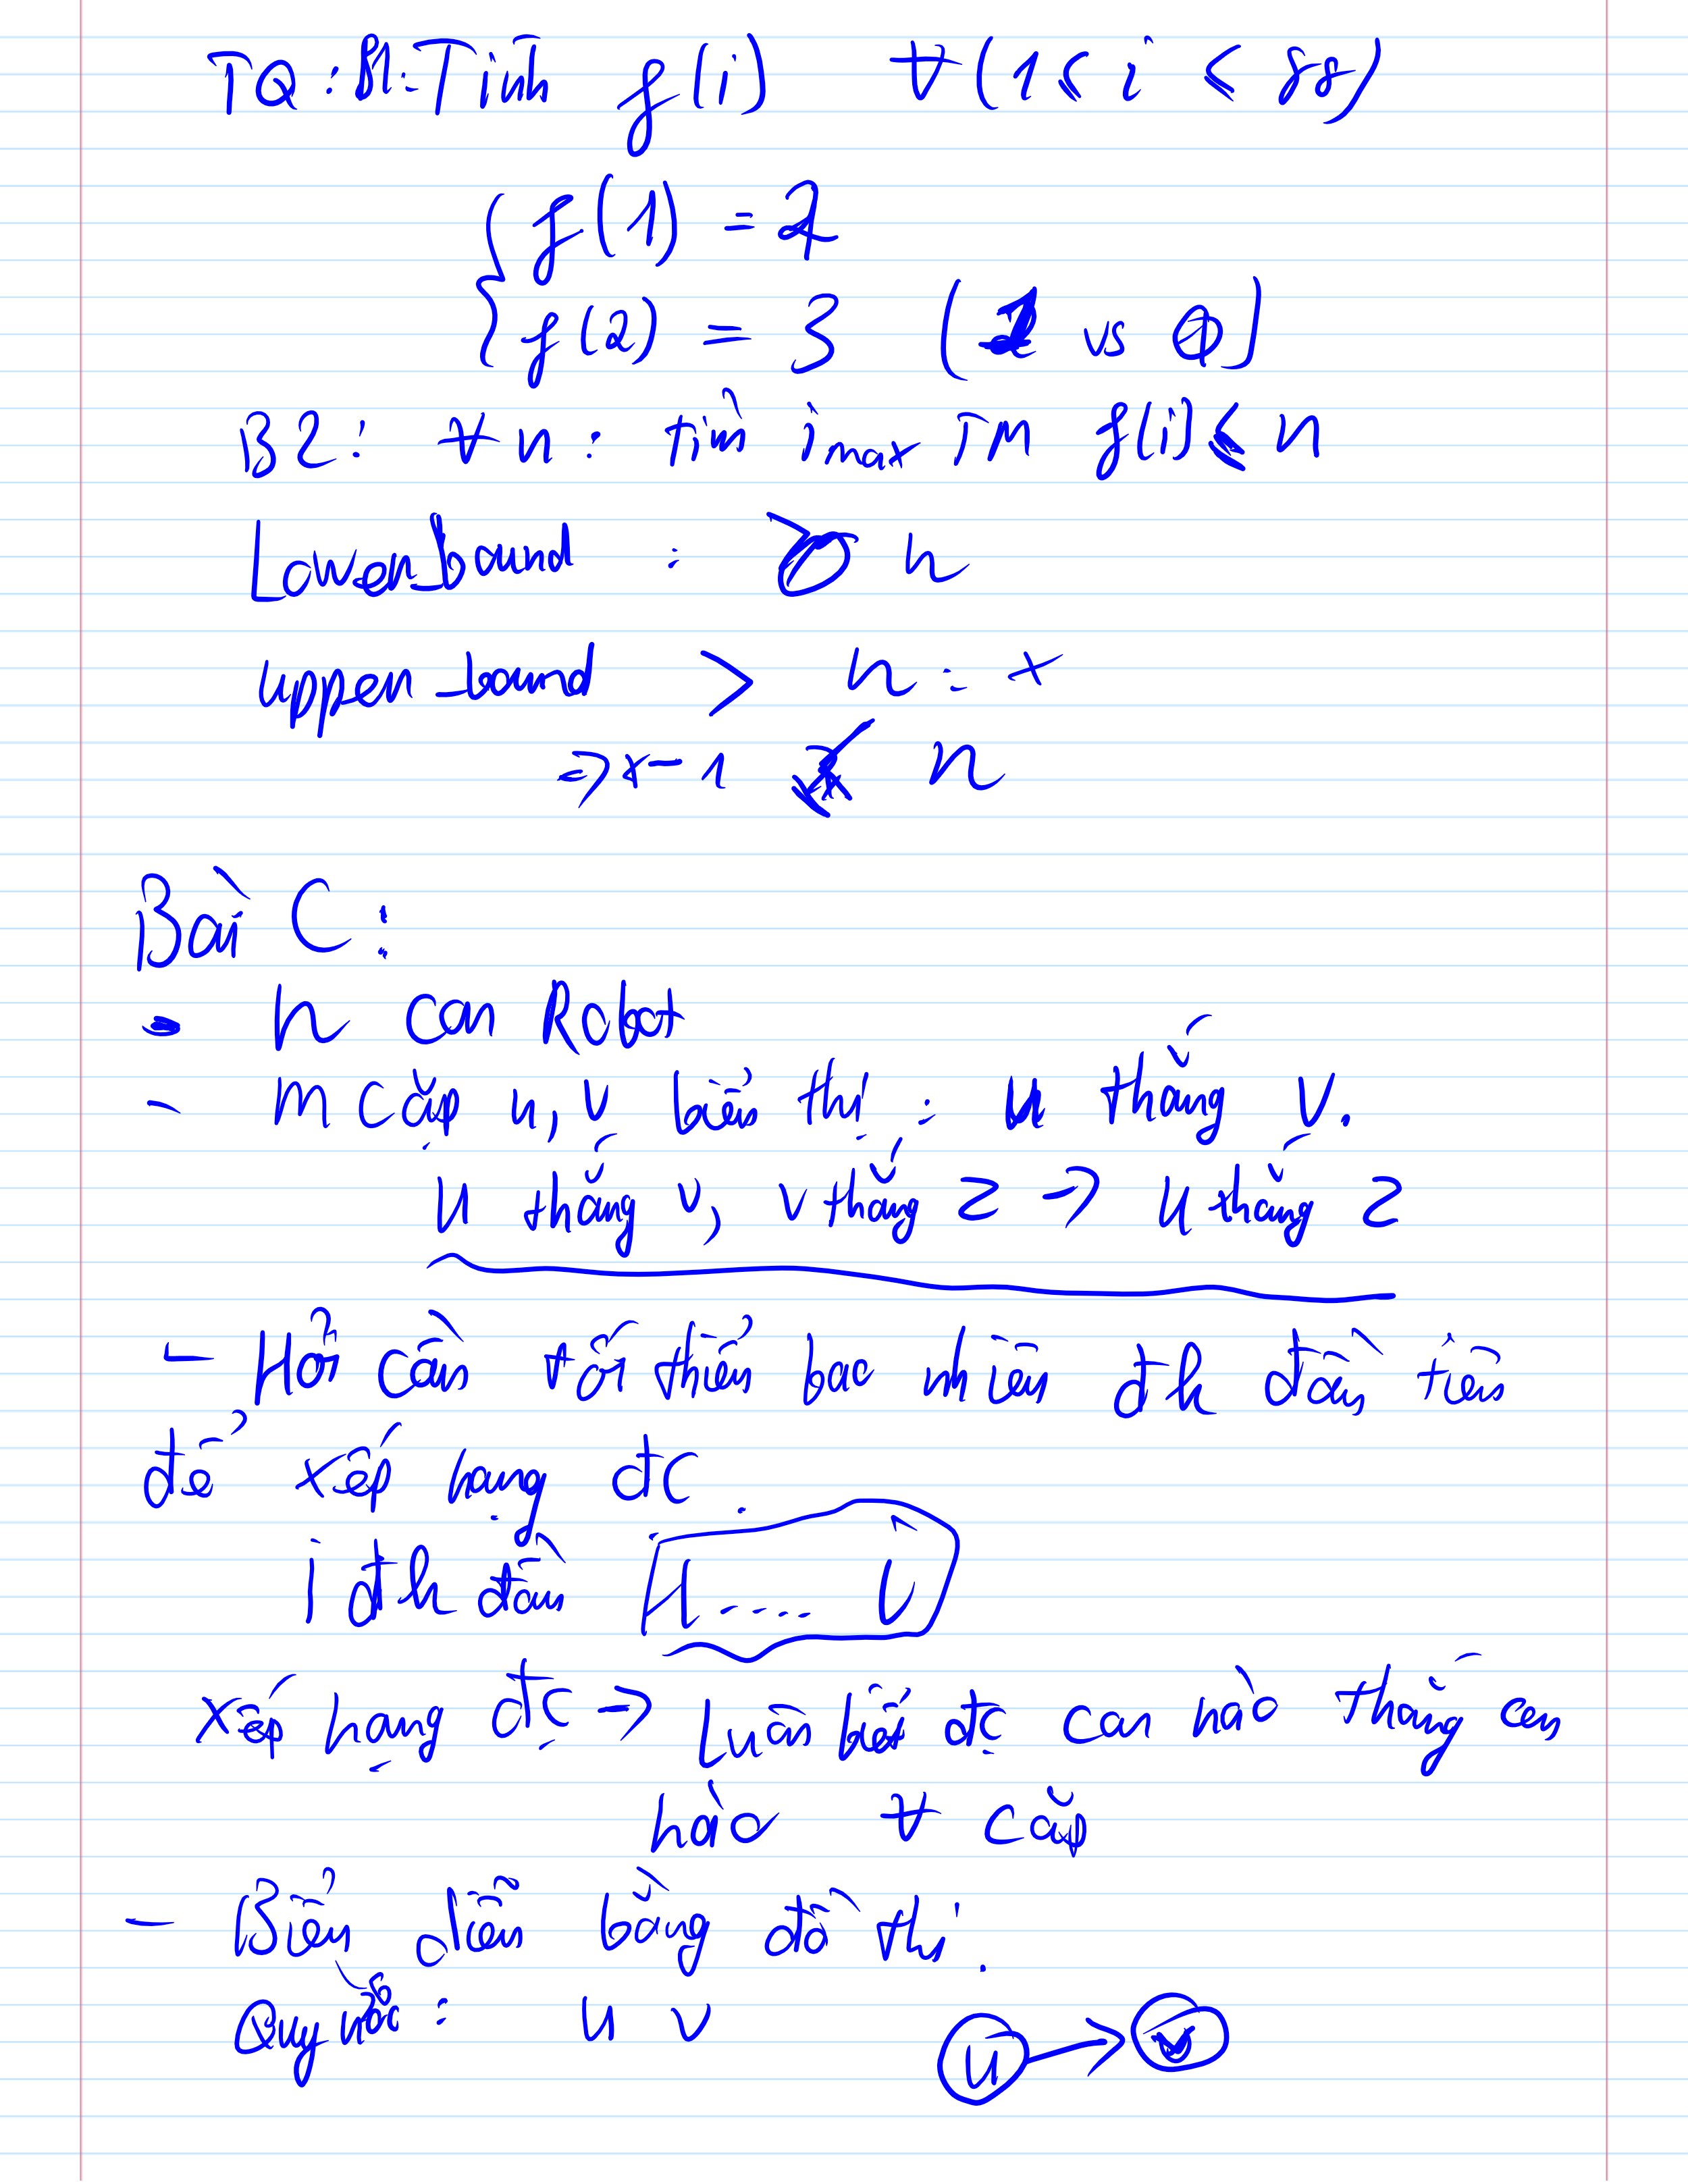 TQ : B1: Tính f(i) ∀ (1 ≤ i ≤ 88)
f(1) = 2
f(2) = 3 (1 vs 0)
B2: ∀ n: tìm imax Tm f(i) ≤ n
Lower bound : n
upper_bound > n : x
=> x - 1 ≤ n
Bài C:
- n con Robot
- m cặp u, v biểu thị : u thắng v.
u thắng v, v thắng z -> u thắng z
- Hỏi cần tối thiểu bao nhiêu đk đầu tiên
để xếp hạng đc.
i đk đầu [1 .... i]
xếp hạng đc -> Luôn biết đc con nào thắng con
nào ∀ cặp
- Biểu diễn bằng đồ thị.
Quy tắc : u v
u -> v